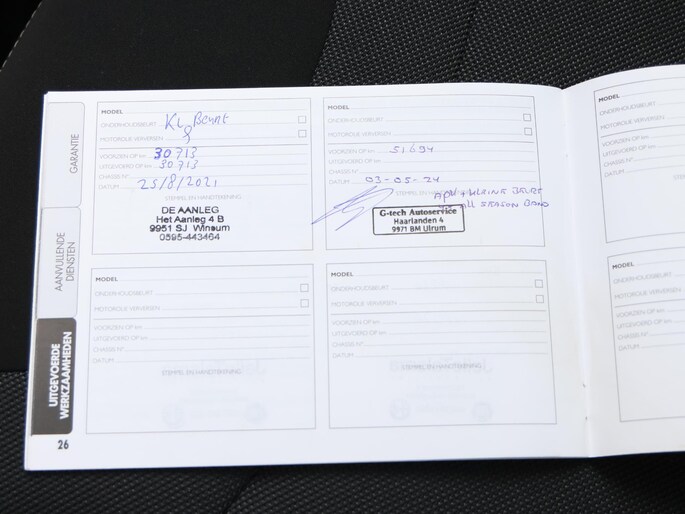 GARANTIE
AANVULLENDE DIENSTEN
UITGEVOERDE WERKZAAMHEDEN
26
MODEL
ONDERHOUDSBEURT Kl Beurt
MOTOROLIE VERVERSEN
VOORZIEN OP km 30713
UITGEVOERD OP km 30713
CHASSIS N°
DATUM 25/8/2021
STEMPEL EN HANDTEKENING
DE AANLEG
Het Aanleg 4 B
9951 SJ Winsum
0595-443464
MODEL
ONDERHOUDSBEURT
MOTOROLIE VERVERSEN
VOORZIEN OP km 51694
UITGEVOERD OP km
CHASSIS N°
DATUM 03-05-24
STEMPEL EN HANDTEKENING
APK + KLEINE BEURT
All SEASON BAND
G-tech Autoservice
Haarlanden 4
9971 BM Ulrum
MODEL
ONDERHOUDSBEURT
MOTOROLIE VERVERSEN
VOORZIEN OP km
UITGEVOERD OP km
CHASSIS N°
DATUM
STEMPEL EN HANDTEKENING
MODEL
ONDERHOUDSBEURT
MOTOROLIE VERVERSEN
VOORZIEN OP km
UITGEVOERD OP km
CHASSIS N°
DATUM
STEMPEL EN HANDTEKENING
MODEL
ONDERHOUDSBEURT
MOTOROLIE VERVERSEN
VOORZIEN OP km
UITGEVOERD OP km
CHASSIS N°
DATUM
MODEL
ONDERHOUDSBEURT
MOTOROLIE VERVERSEN
VOORZIEN OP km
UITGEVOERD OP km
CHASSIS N°
DATUM